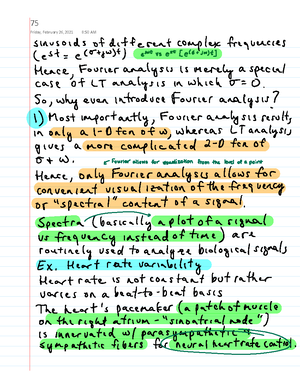 75
Friday, February 26, 2021 8:50 AM
sinusoids of different complex frequencies
(e^st = e^(σ+jω)t)
Hence, Fourier analysis is merely a special
case of LT analysis in which σ = 0.
So, why even introduce Fourier analysis?
1) Most importantly, Fourier analysis results
in only a 1-D fcn of ω, whereas LT analysis
gives a more complicated 2-D fcn of
σ + ω.
Hence, only Fourier analysis allows for
convenient visualization of the frequency
or "spectral" content of a signal.
Spectra (basically a plot of a signal
vs frequency instead of time) are
routinely used to analyze biological signals
Ex. Heart rate variability
Heart rate is not constant but rather
varies on a beat-to-beat basis
The heart's pacemaker (a patch of muscle
on the right atrium - "sinoatrial node")
is innervated w/ parasympathetic +
sympathetic fibers for neural heart rate control.